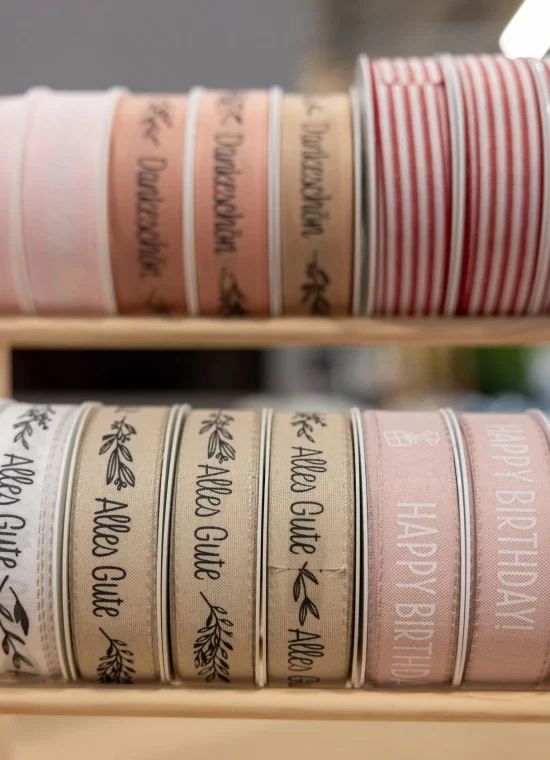 Dankeschön
Dankeschön
Dankeschön
Alles Gute
Alles Gute
Alles Gute
Alles Gute
Alles G
HAPPY BIRTHD
HAPPY BIRTHDAY!